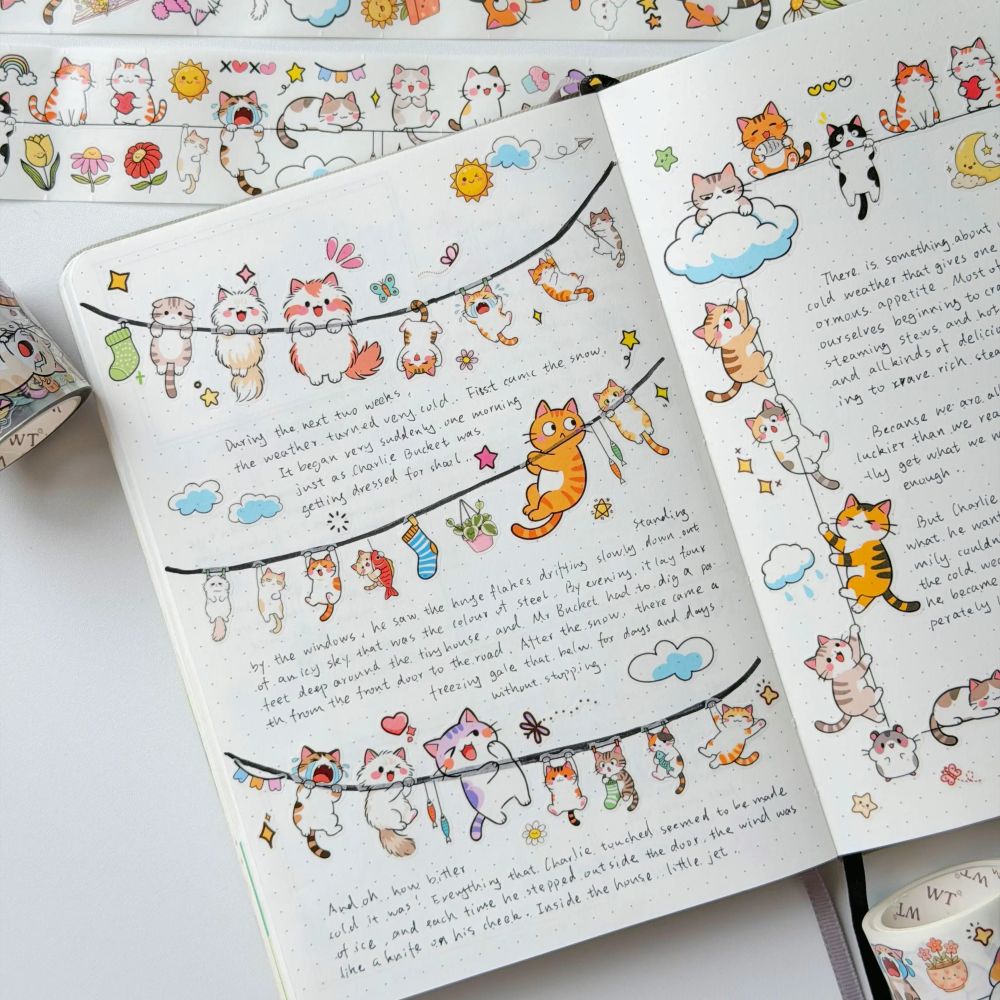 XOXO
During the next two weeks,
the weather turned very cold. First came the snow.
It began very suddenly one morning
just as Charlie Bucket was
getting dressed for shool.
Standing
by the windows, he saw the huge flakes drifting slowly down out
of an icy sky that was the colour of steel. By evening, it lay four
feet deep around the tiny house, and Mr Bucket had to dig a pa
th from the front door to the road. After the snow, there came a
freezing gale that belw for days and days.
without stopping.
And oh, how bitter
cold it was! Everything that Charlie touched seemed to be made
of ice, and each time he stepped outside the door, the wind was
like a knife on his cheek. Inside the house, little jet
There is something about
cold weather that gives one
ormous appetite. Most of
ourselves beginning to cra
steaming stews and hot
and all kinds of delicio
ing to crave rich, stea
Because we are al
luckier than we rea
lly get what we w
enough.
But Charlie
what he wan
mily couldn
the cold we
he became
perately
WT
WT
WT
WT